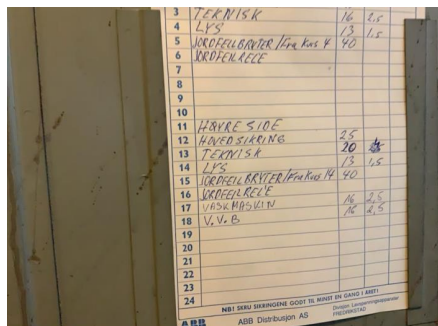 3 TEKNISK 16 2,5
4 LYS 13 1,5
5 JORDFEILBRYTER/Fra Kurs 4 40
6 JORDFEILRELE
7
8
9
10
11 HØYRE SIDE
12 HOVEDSIKRING 25
13 TEKNISK 20
14 LYS 13 1,5
15 JORDFEILBRYTER/Fra Kurs 14 40
16 JORDFEILRELE
17 VASKMASKIN 16 2,5
18 V.V.B 16 2,5
19
20
21
22
23
24
NB! SKRU SIKRINGENE GODT TIL MINST EN GANG I ÅRET!
ABB ABB Distribusjon AS Divisjon Lavspenningsapparater
FREDRIKSTAD